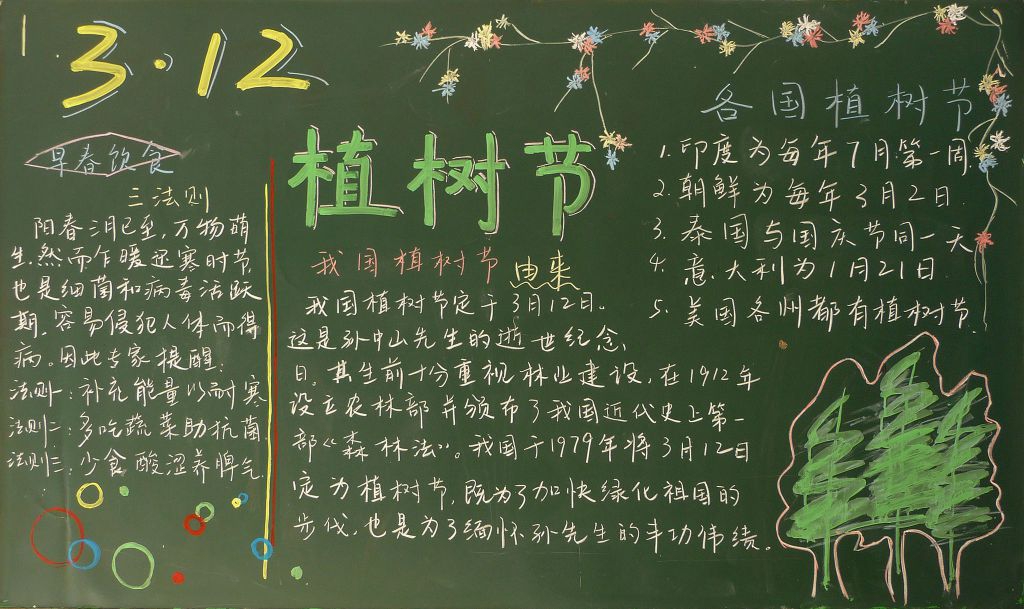 3·12
植树节
早春饮食
三法则
阳春三月已至,万物萌
生,然而乍暖还寒时节
也是细菌和病毒活跃
期,容易侵犯人体而得
病。因此专家提醒:
法则一:补充能量以耐寒
法则二:多吃蔬菜助抗菌
法则三:少食酸涩养脾气
我国植树节由来
我国植树节定于3月12日。
这是孙中山先生的逝世纪念
日。其生前十分重视林业建设,在1912年
设立农林部并颁布了我国近代史上第一
部《森林法》。我国于1979年将3月12日
定为植树节,既为了加快绿化祖国的
步伐,也是为了缅怀孙先生的丰功伟绩。
各国植树节
1.印度为每年7月第一周
2.朝鲜为每年3月2日
3.泰国与国庆节同一天
4.意大利为1月21日
5.美国各州都有植树节